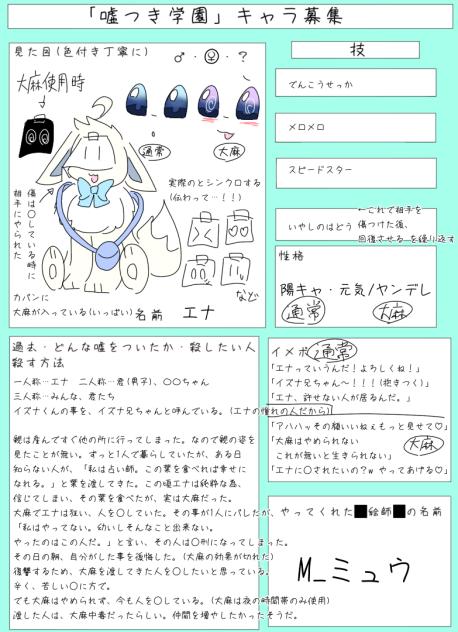 「嘘つき学園」キャラ募集
見た目(色付き丁寧に)
♂・♀・?
大麻使用時
通常
大麻
実際のとシンクロする
(伝わって…!!)
傷は〇している時に
相手にやられた
など
カバンに
大麻が入っている(いっぱい)
名前 エナ
技
でんこうせっか
メロメロ
スピードスター
いやしのはどう
←これで相手を
傷つけた後、
回復させる を繰り返す
性格
陽キャ・元気/ヤンデレ
通常
大麻
過去・どんな嘘をついたか・殺したい人
殺す方法
一人称…エナ 二人称…君(男子)、〇〇ちゃん
三人称…みんな、君たち
イズナくんの事を、イズナ兄ちゃんと呼んでいる。(エナの憧れの人だから)
親は産んですぐ他の所に行ってしまった。なので親の姿を
見たことが無い。ずっと1人で暮らしていたが、ある日
知らない人が、「私は占い師。この葉を食べれば幸せに
なれる。」と葉を渡してきた。この頃エナは純粋な為、
信じてしまい、その葉を食べたが、実は大麻だった。
大麻でエナは狂い、人を〇していた。その事が1人にバレたが、
「私はやってない。幼いしそんなこと出来ない。
やったのはこの人だ。」と言い、その人は〇刑になってしまった。
その日の朝、自分がした事を後悔した。(大麻の効果が切れた)
復讐するため、大麻を渡してきた人を〇したいと思っている。
辛く、苦しい〇に方で。
でも大麻はやめられず、今も人を〇している。(大麻は夜の時間帯のみ使用)
渡した人は、大麻中毒だったらしい。仲間を増やしたかったそうだ。
イメボ 通常
「エナっていうんだ!よろしくね!」
「イズナ兄ちゃん〜!!!(抱きつく)」
「エナ、許せない人が居るんだ。」
「アハハッその顔いいねぇもっと見せて♡」
「大麻はやめられない
これが無いと生きられない」
大麻
「エナに〇されたいの?w やってあげる♡」
やってくれた■絵師■の名前
M_ミュウ